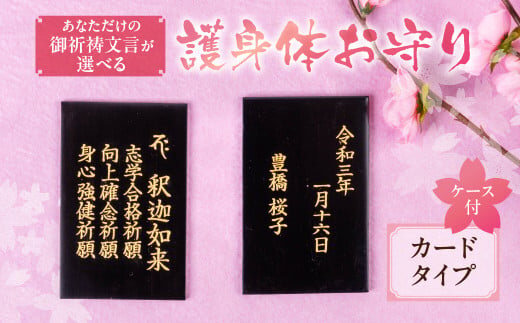 あなただけの
御祈祷文言が
選べる
護身体お守り
釈迦如来
志学合格祈願
向上確念祈願
身心強健祈願
令和三年
一月十六日
豊橋 桜子
ケース
付
カード
タイプ